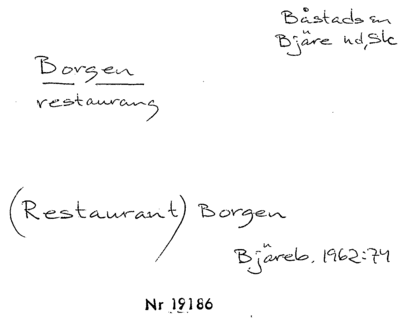 Båstads sn
Bjäre hd, Sk
Borgen
restaurang
(Restaurant) Borgen
Bjäreb. 1962:74
Nr 19186